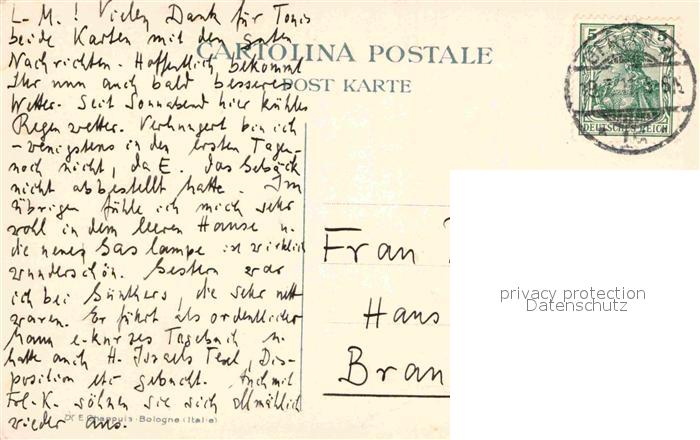 L-M.! Vielen Dank für Tonis
beide Karten mit den guten
Nachrichten. Hoffentlich bekommt
Ihr nun auch bald besseres
Wetter. Seit Sonnabend hier kühles
Regenwetter. Verhungert bin ich
- wenigstens in den ersten Tagen -
noch nicht, da E. das Gebäck
nicht abbestellt hatte. Im
übrigen fühle ich mich sehr
wohl in dem leeren Hause u.
die neue Gaslampe ist wirklich
wunderschön. Gestern war
ich bei Günthers, die sehr nett
waren. Er führt als ordentlicher
Mann e. kurzes Tagebuch u.
hatte auch H. Israels Text, Dis-
position etc gebucht. Auch mit
Frl. K. söhnen sie sich allmählich
wieder aus.
CARTOLINA POSTALE
POST KARTE
5 5
DEUTSCHES REICH
Frau
Hans
Bran
privacy protection
Datenschutz
Dr E. Chappuis - Bologne (Italie)